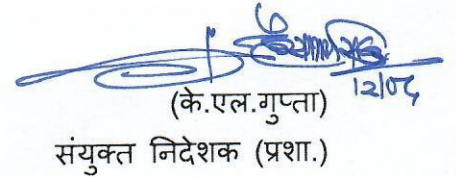 12/08
(के.एल.गुप्ता)
संयुक्त निदेशक (प्रशा.)